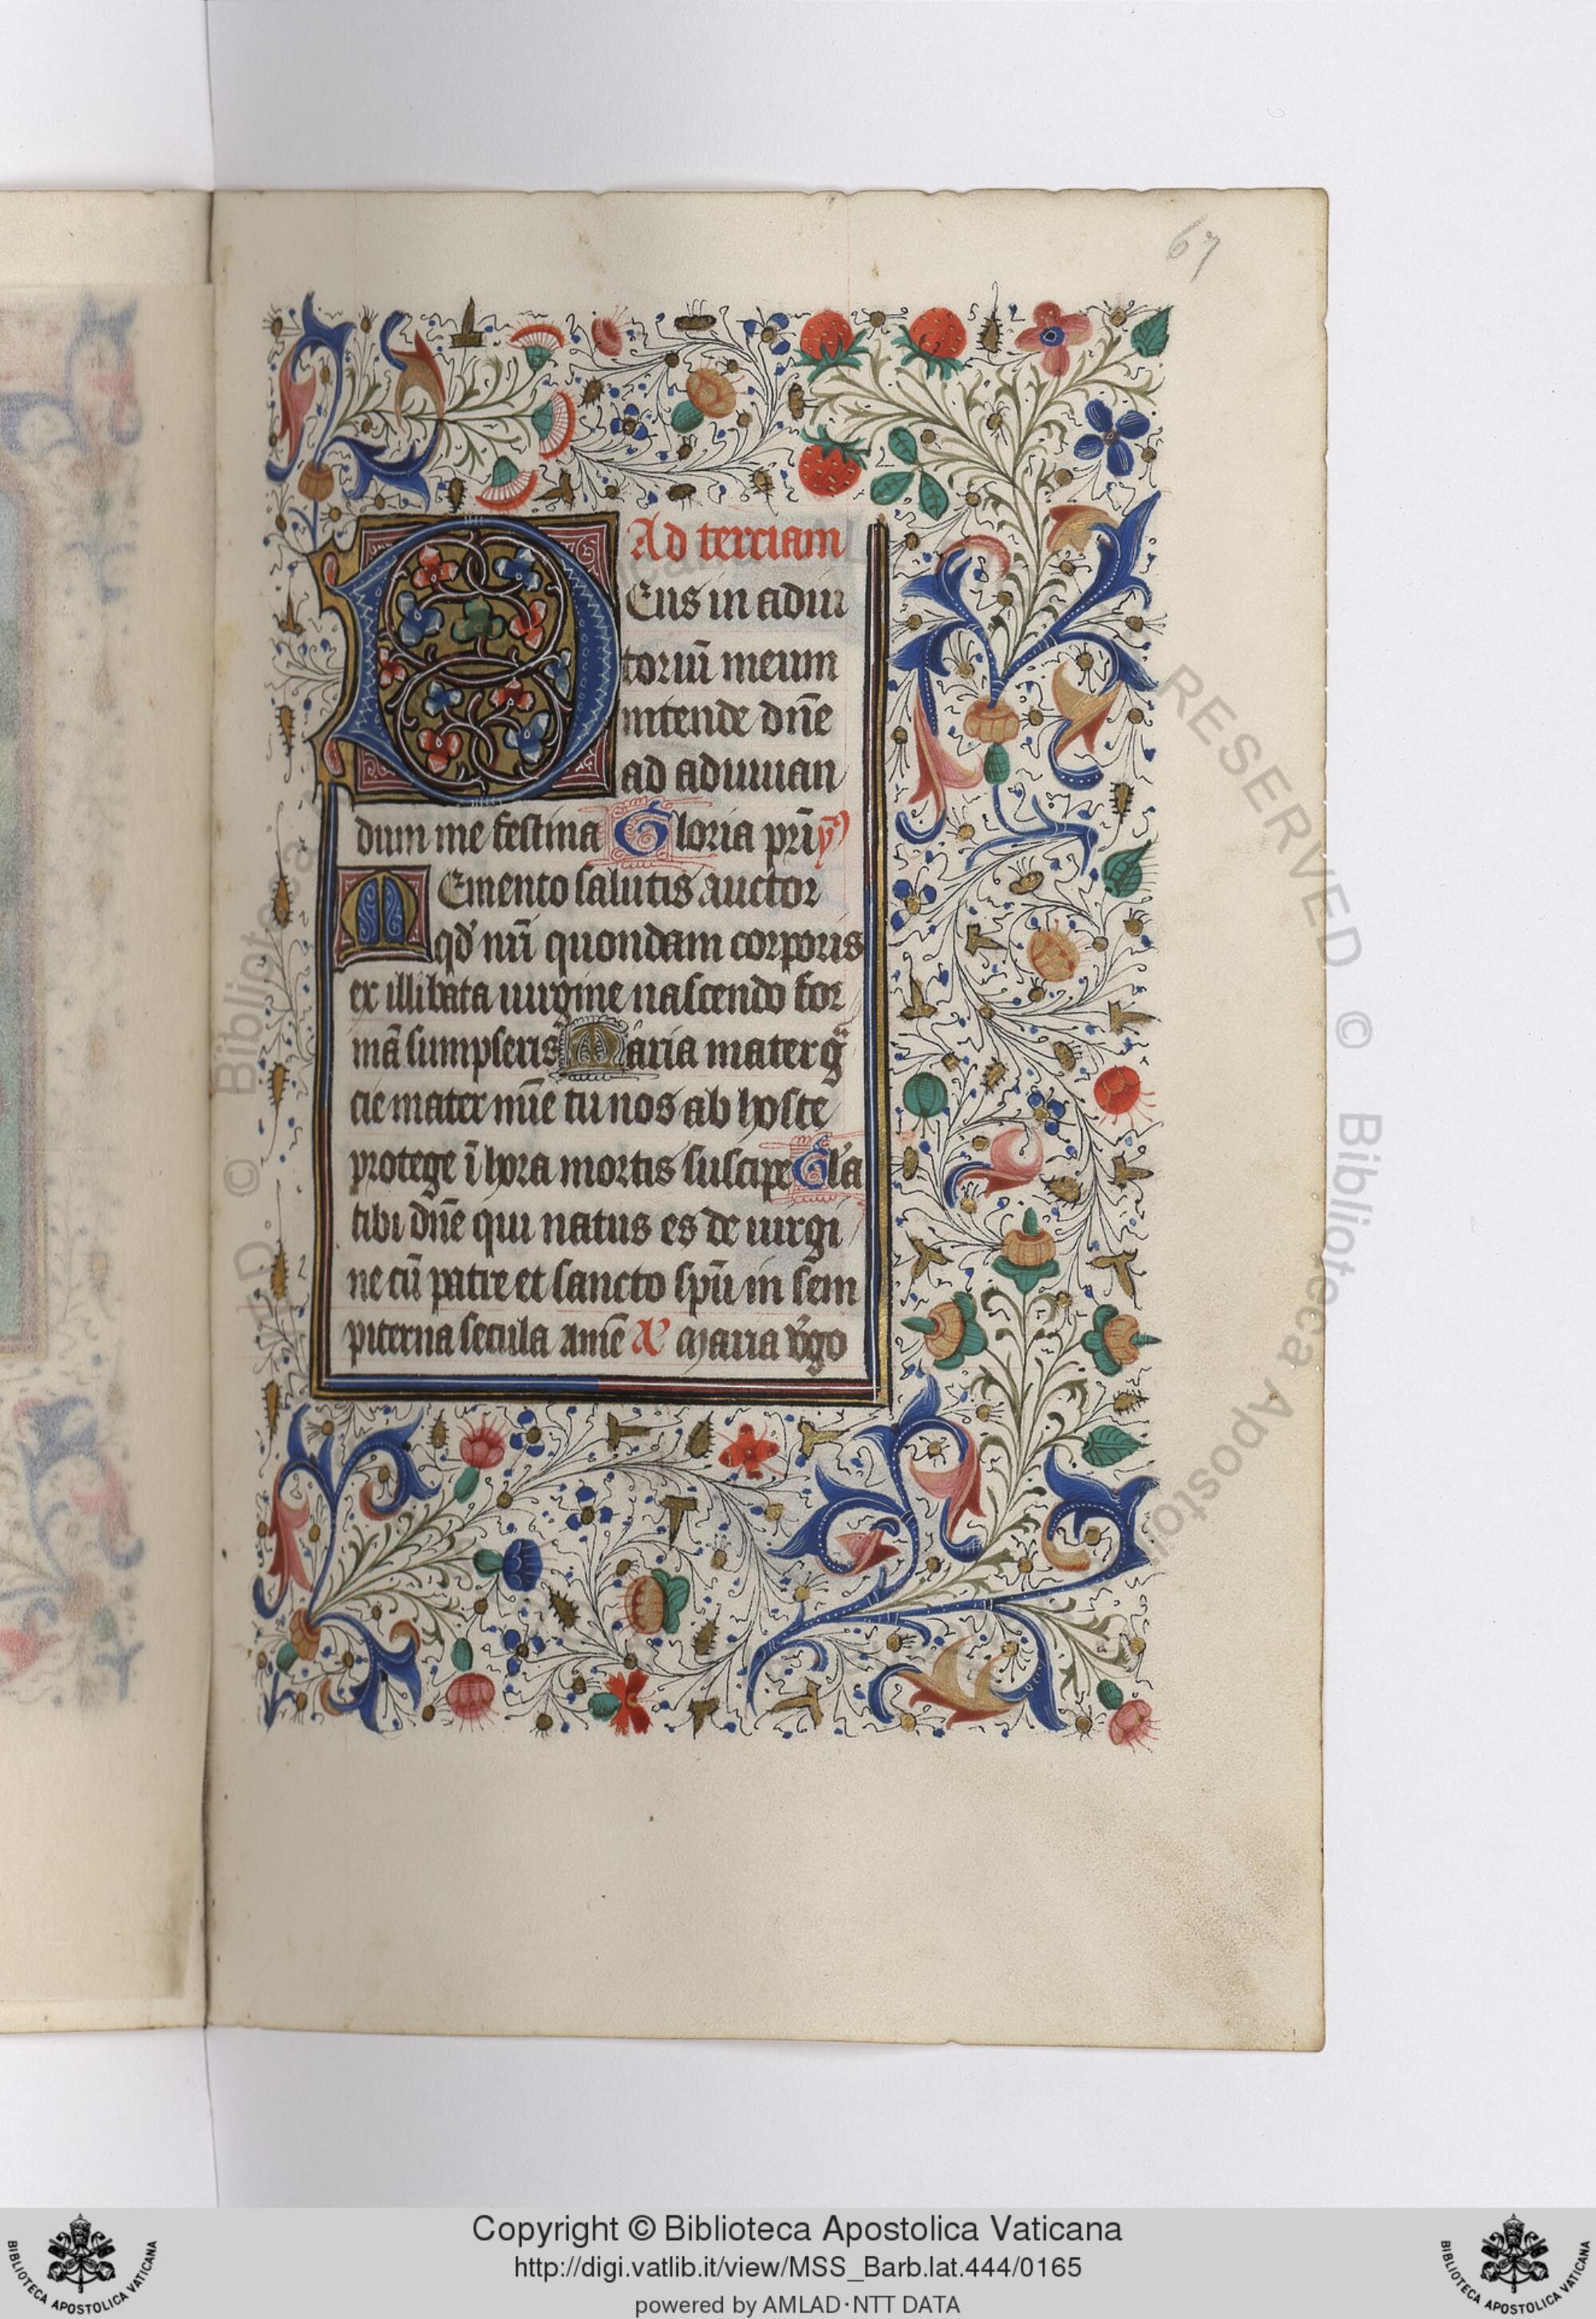 67
Ad terciam
DEus in adiu
toriū meum
intende dn̄e
ad adiuuan
dum me festina Gloria pr̄i ym̄
MEmento salutis auctor
qd' nr̄i quondam corporis
ex illibata uirgine nascendo for
mā sumpseris Maria mater gͣ
cie mater mīe tu nos ab hoste
protege ī hora mortis suscipe Gl'a
tibi dn̄e qui natus es de uirgi
ne cū patre et sancto spū in sem
piterna secula amē A' Maria v̄go
RESERVED © Biblioteca Apostolica
Copyright © Biblioteca Apostolica Vaticana
http://digi.vatlib.it/view/MSS_Barb.lat.444/0165
powered by AMLAD·NTT DATA
BIBLIOTECA APOSTOLICA VATICANA
BIBLIOTECA APOSTOLICA VATICANA